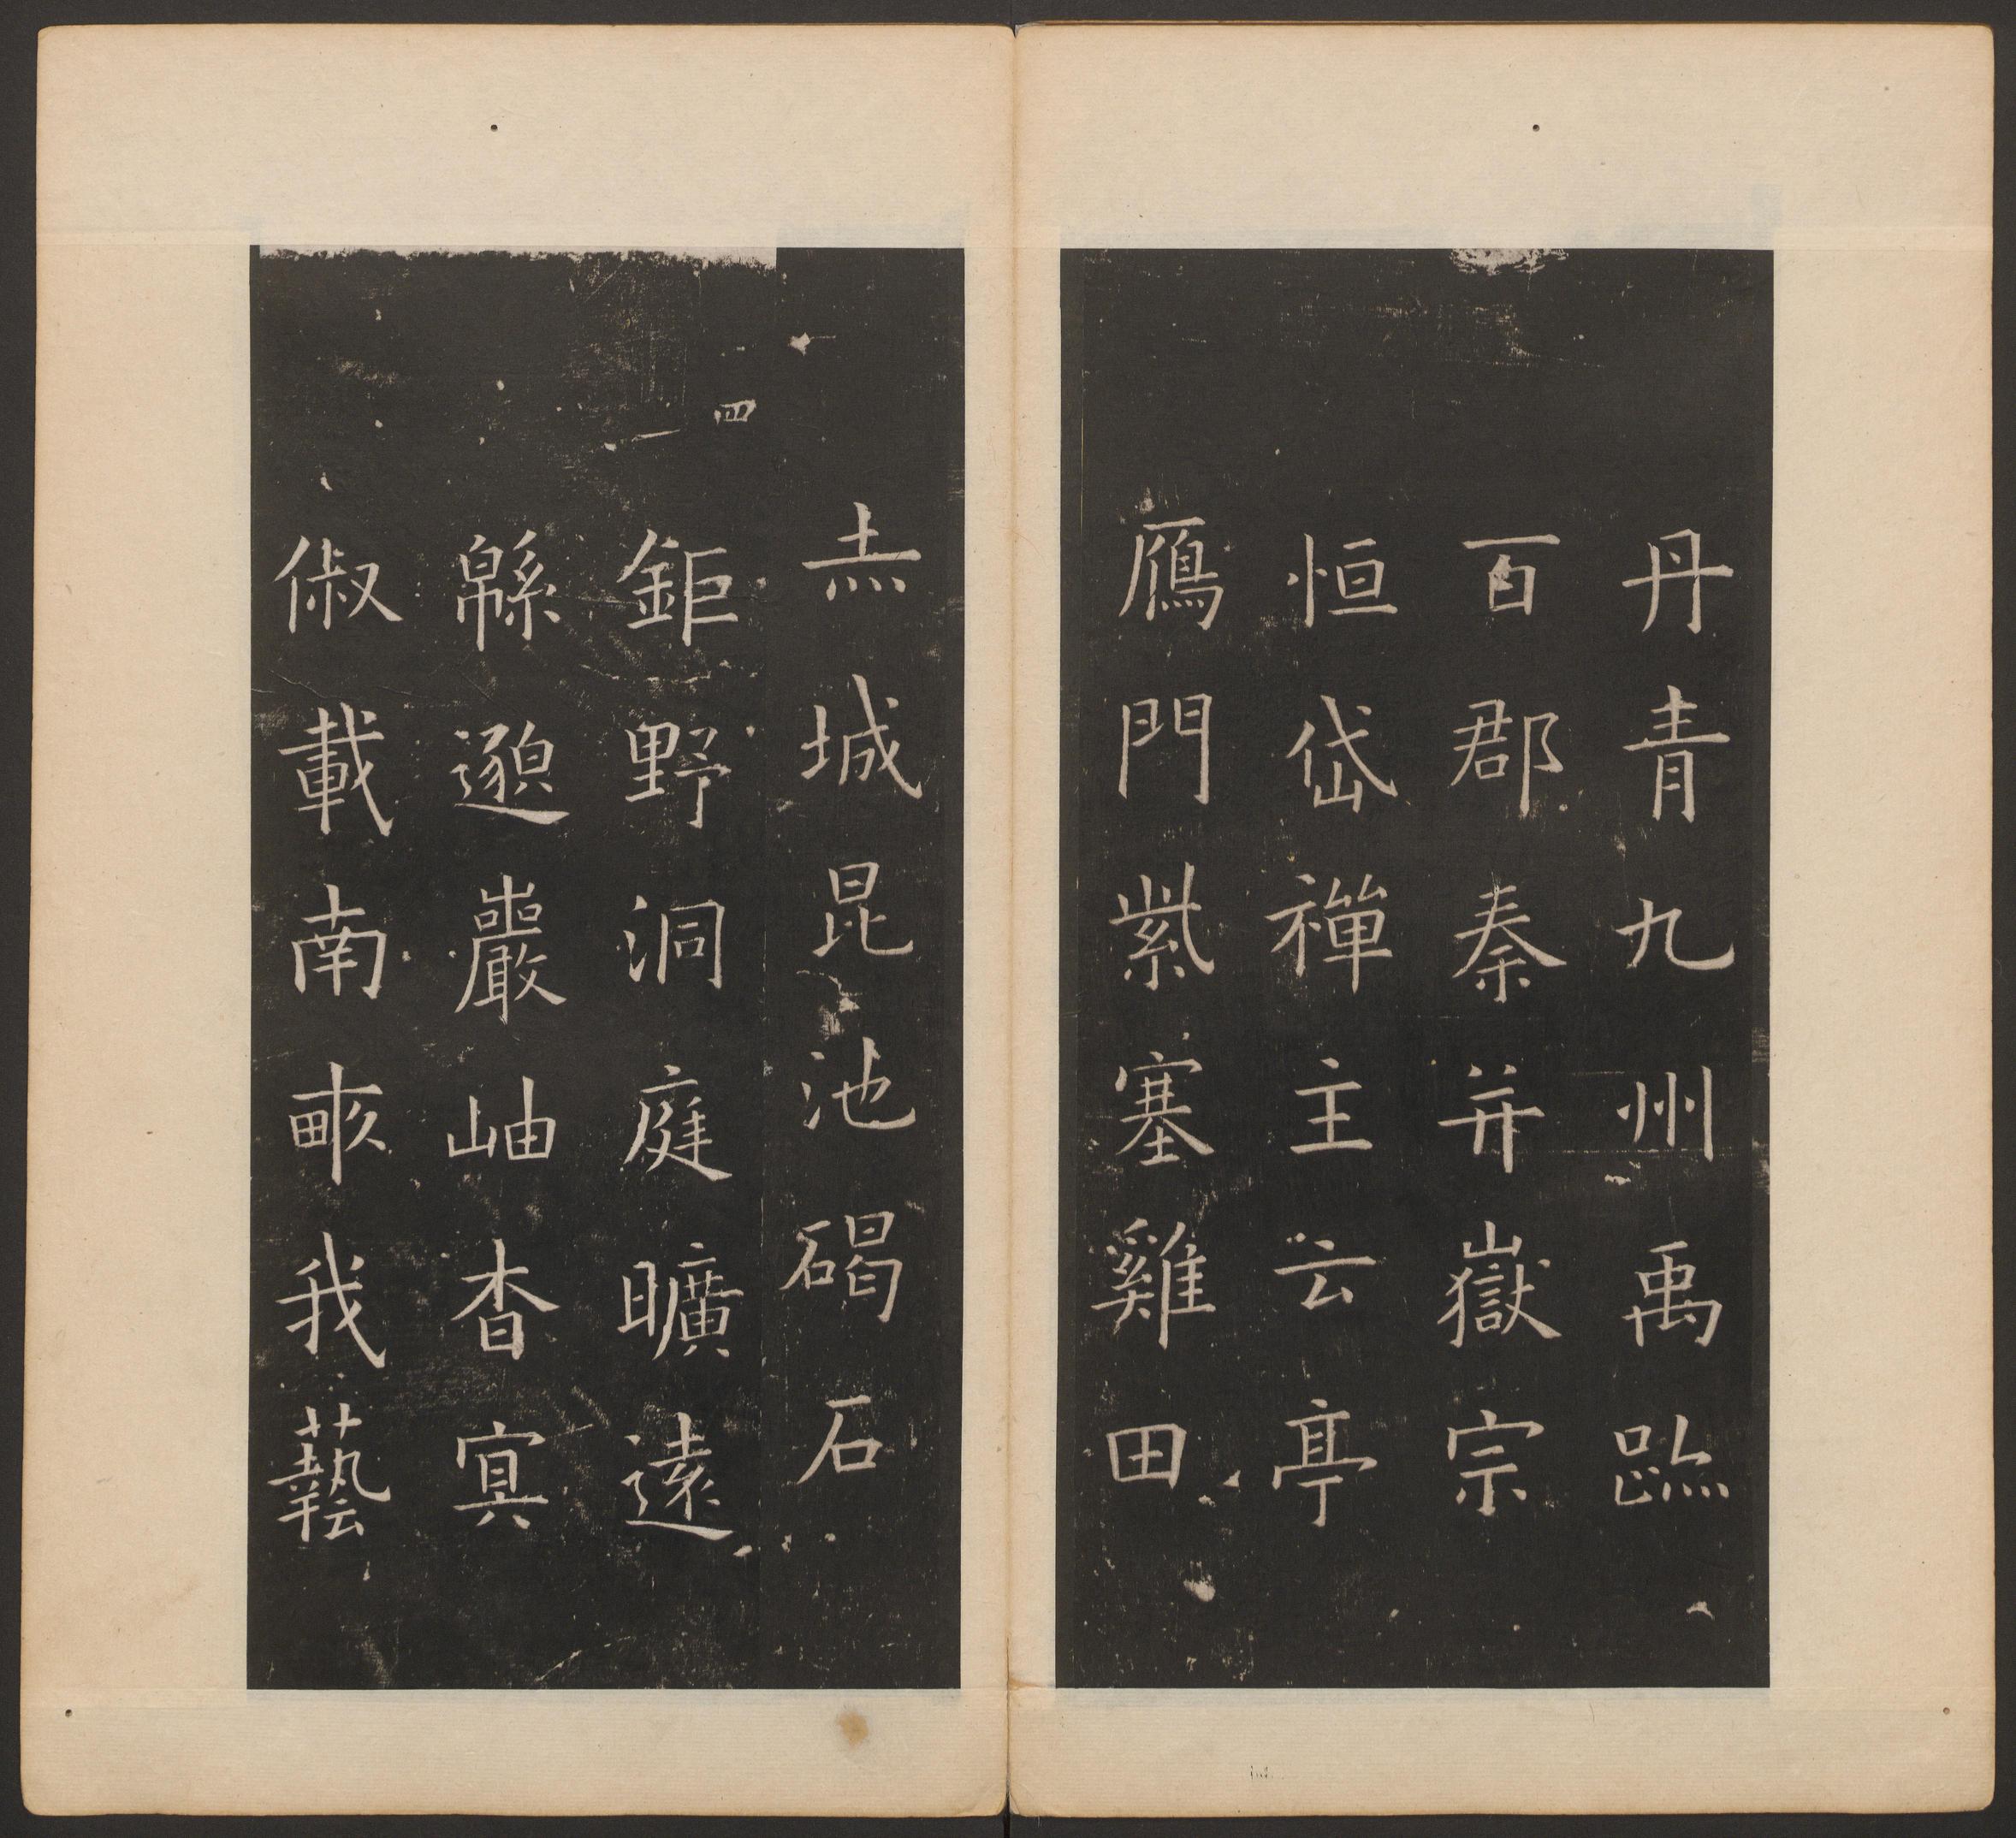 丹青九州禹跡
百郡秦并嶽宗
恒岱禪主云亭
鴈門紫塞雞田
赤城昆池碣石
鉅野洞庭曠遠
緜邈巖岫杳冥
俶載南畝我藝
四